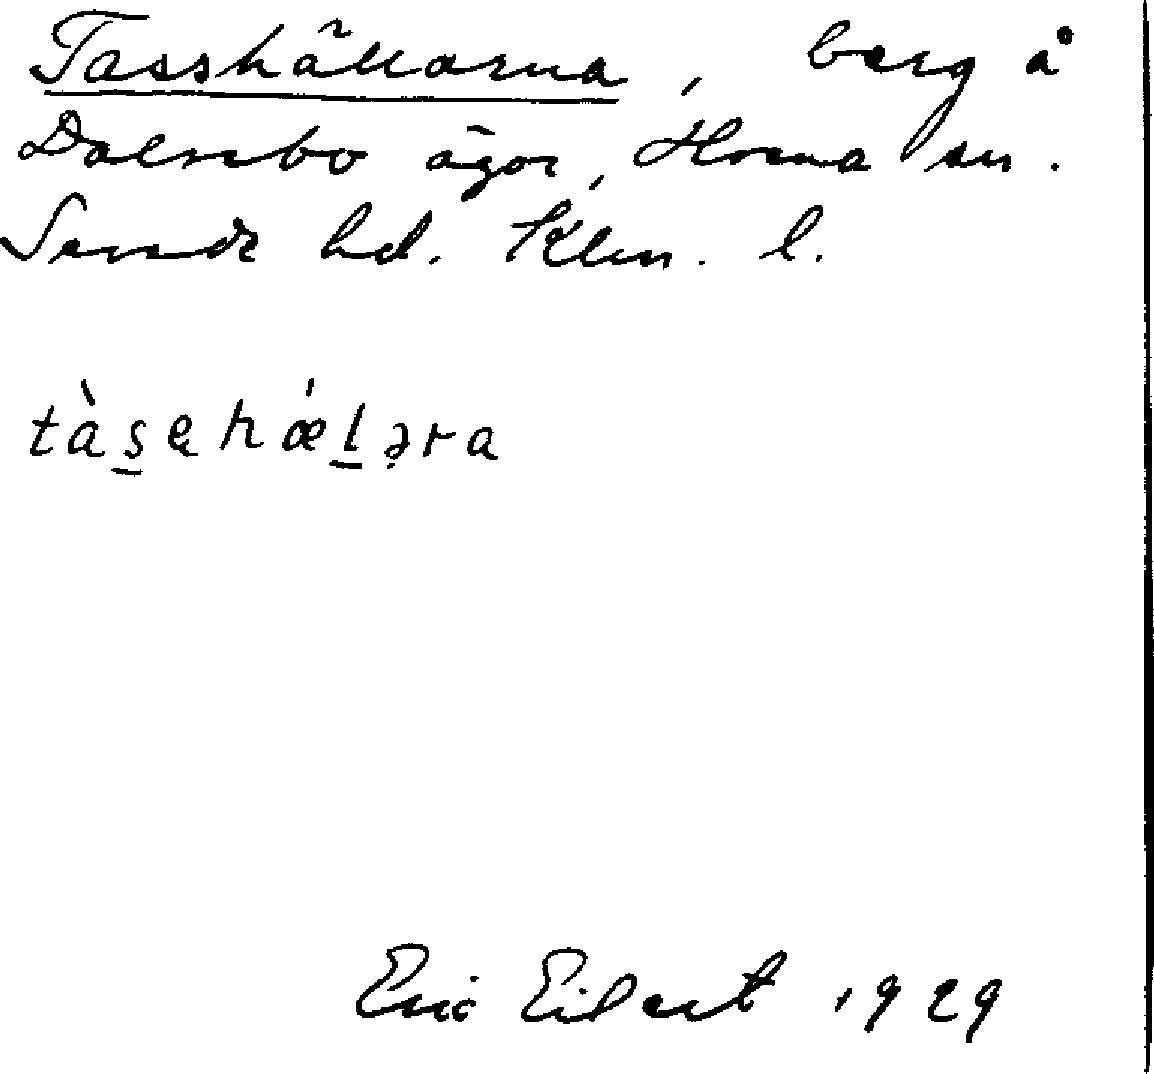 Tasshällarna, berg å
Dalsebo ägor, Hovma sn.
Sevede hd. Klm. l.
tàs̲ehǽl̲əra
Eric Eilert 1929